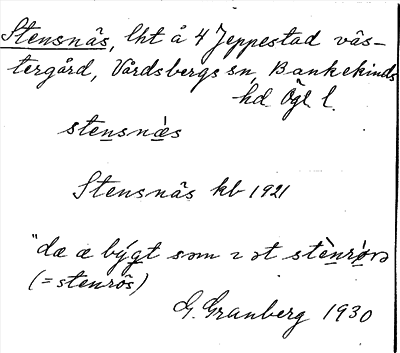 Stensnäs, lht å 4 Jeppestad väs-
tergård, Vårdsbergs sn, Bankekinds
hd Ögl l.
stensnæ̀s
Stensnäs kb 1921
"dæ æ býgt som ı ət stènrǿs
(= stenrös)
G. Granberg 1930